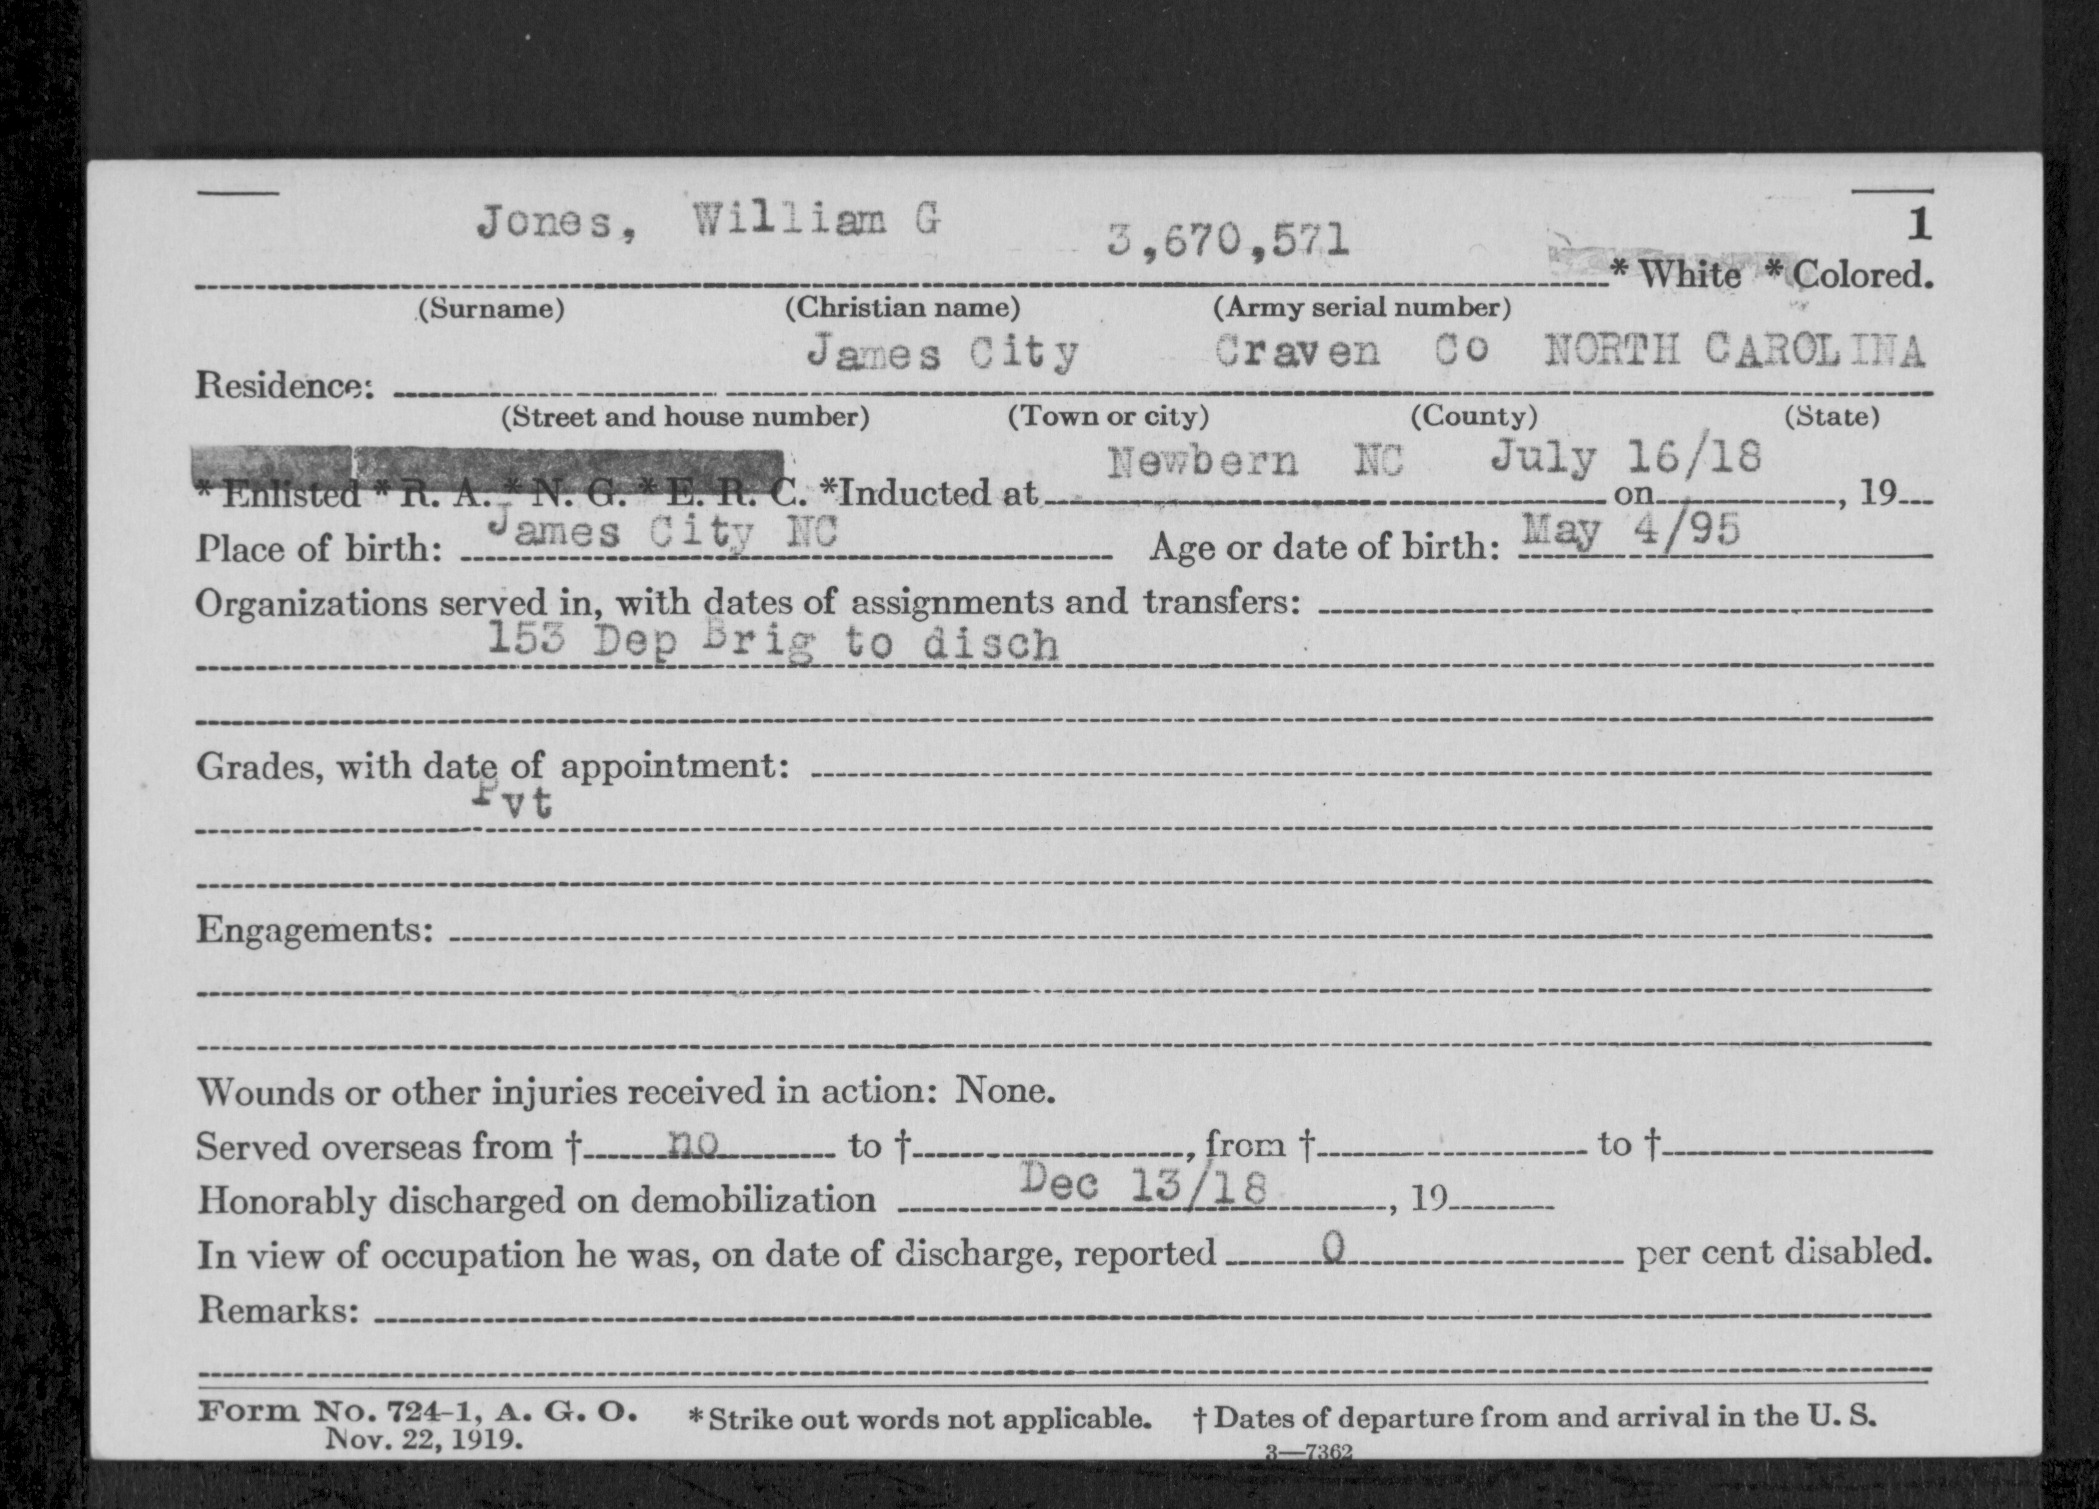 1
Jones, William G 3,670,571 * White * Colored.
(Surname) (Christian name) (Army serial number)
James City Craven Co NORTH CAROLINA
Residence:
(Street and house number) (Town or city) (County) (State)
Newbern NC July 16/18
* Enlisted * R. A. * N. G. * E. R. C. *Inducted at on , 19
Place of birth: James City NC Age or date of birth: May 4/95
Organizations served in, with dates of assignments and transfers:
153 Dep Brig to disch
Grades, with date of appointment:
Pvt
Engagements:
Wounds or other injuries received in action: None.
Served overseas from † no to † , from † to †
Honorably discharged on demobilization Dec 13/18 , 19
In view of occupation he was, on date of discharge, reported 0 per cent disabled.
Remarks:
Form No. 724-1, A. G. O. *Strike out words not applicable. † Dates of departure from and arrival in the U. S.
Nov. 22, 1919.
3—7362